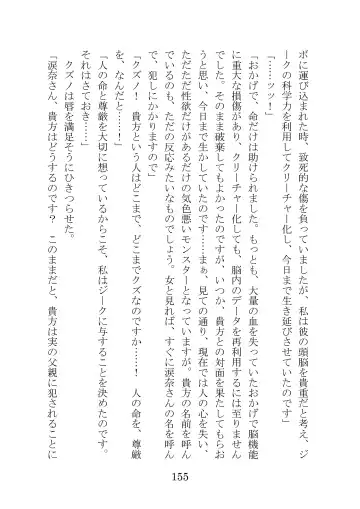 ボに運び込まれた時、致死的な傷を負っていましたが、私は彼の頭脳を貴重だと考え、ジ
ークの科学力を利用してクリーチャー化し、今日まで生き延びさせていたのです」
「……ッッ！」
「おかげで、命だけは助けられました。もっとも、大量の血を失っていたおかげで脳機能
に重大な損傷があり、クリーチャー化しても、脳内のデータを再利用するには至りません
でした。そのまま破棄してもよかったのですが、いつか、貴方との対面を果たしてもらお
うと思い、今日まで生かしていたのです……まぁ、見ての通り、現在では人の心を失い、
ただただ性欲だけがあるだけの気色悪いモンスターとなっていますが。貴方の名前を呼ん
でいるのも、ただの反応みたいなものでしょう。女と見れば、すぐに涙奈さんの名を呼ん
で、犯しにかかりますので」
「クズノ！　貴方という人はどこまで、どこまでクズなのですか……！　人の命を、尊厳
を、なんだと……！」
「人の命と尊厳を大切に想っているからこそ、私はジークに与することを決めたのです。
それはさておき……」
クズノは唇を満足そうにひきつらせた。
「涙奈さん、貴方はどうするのです？　このままだと、貴方は実の父親に犯されることに
155